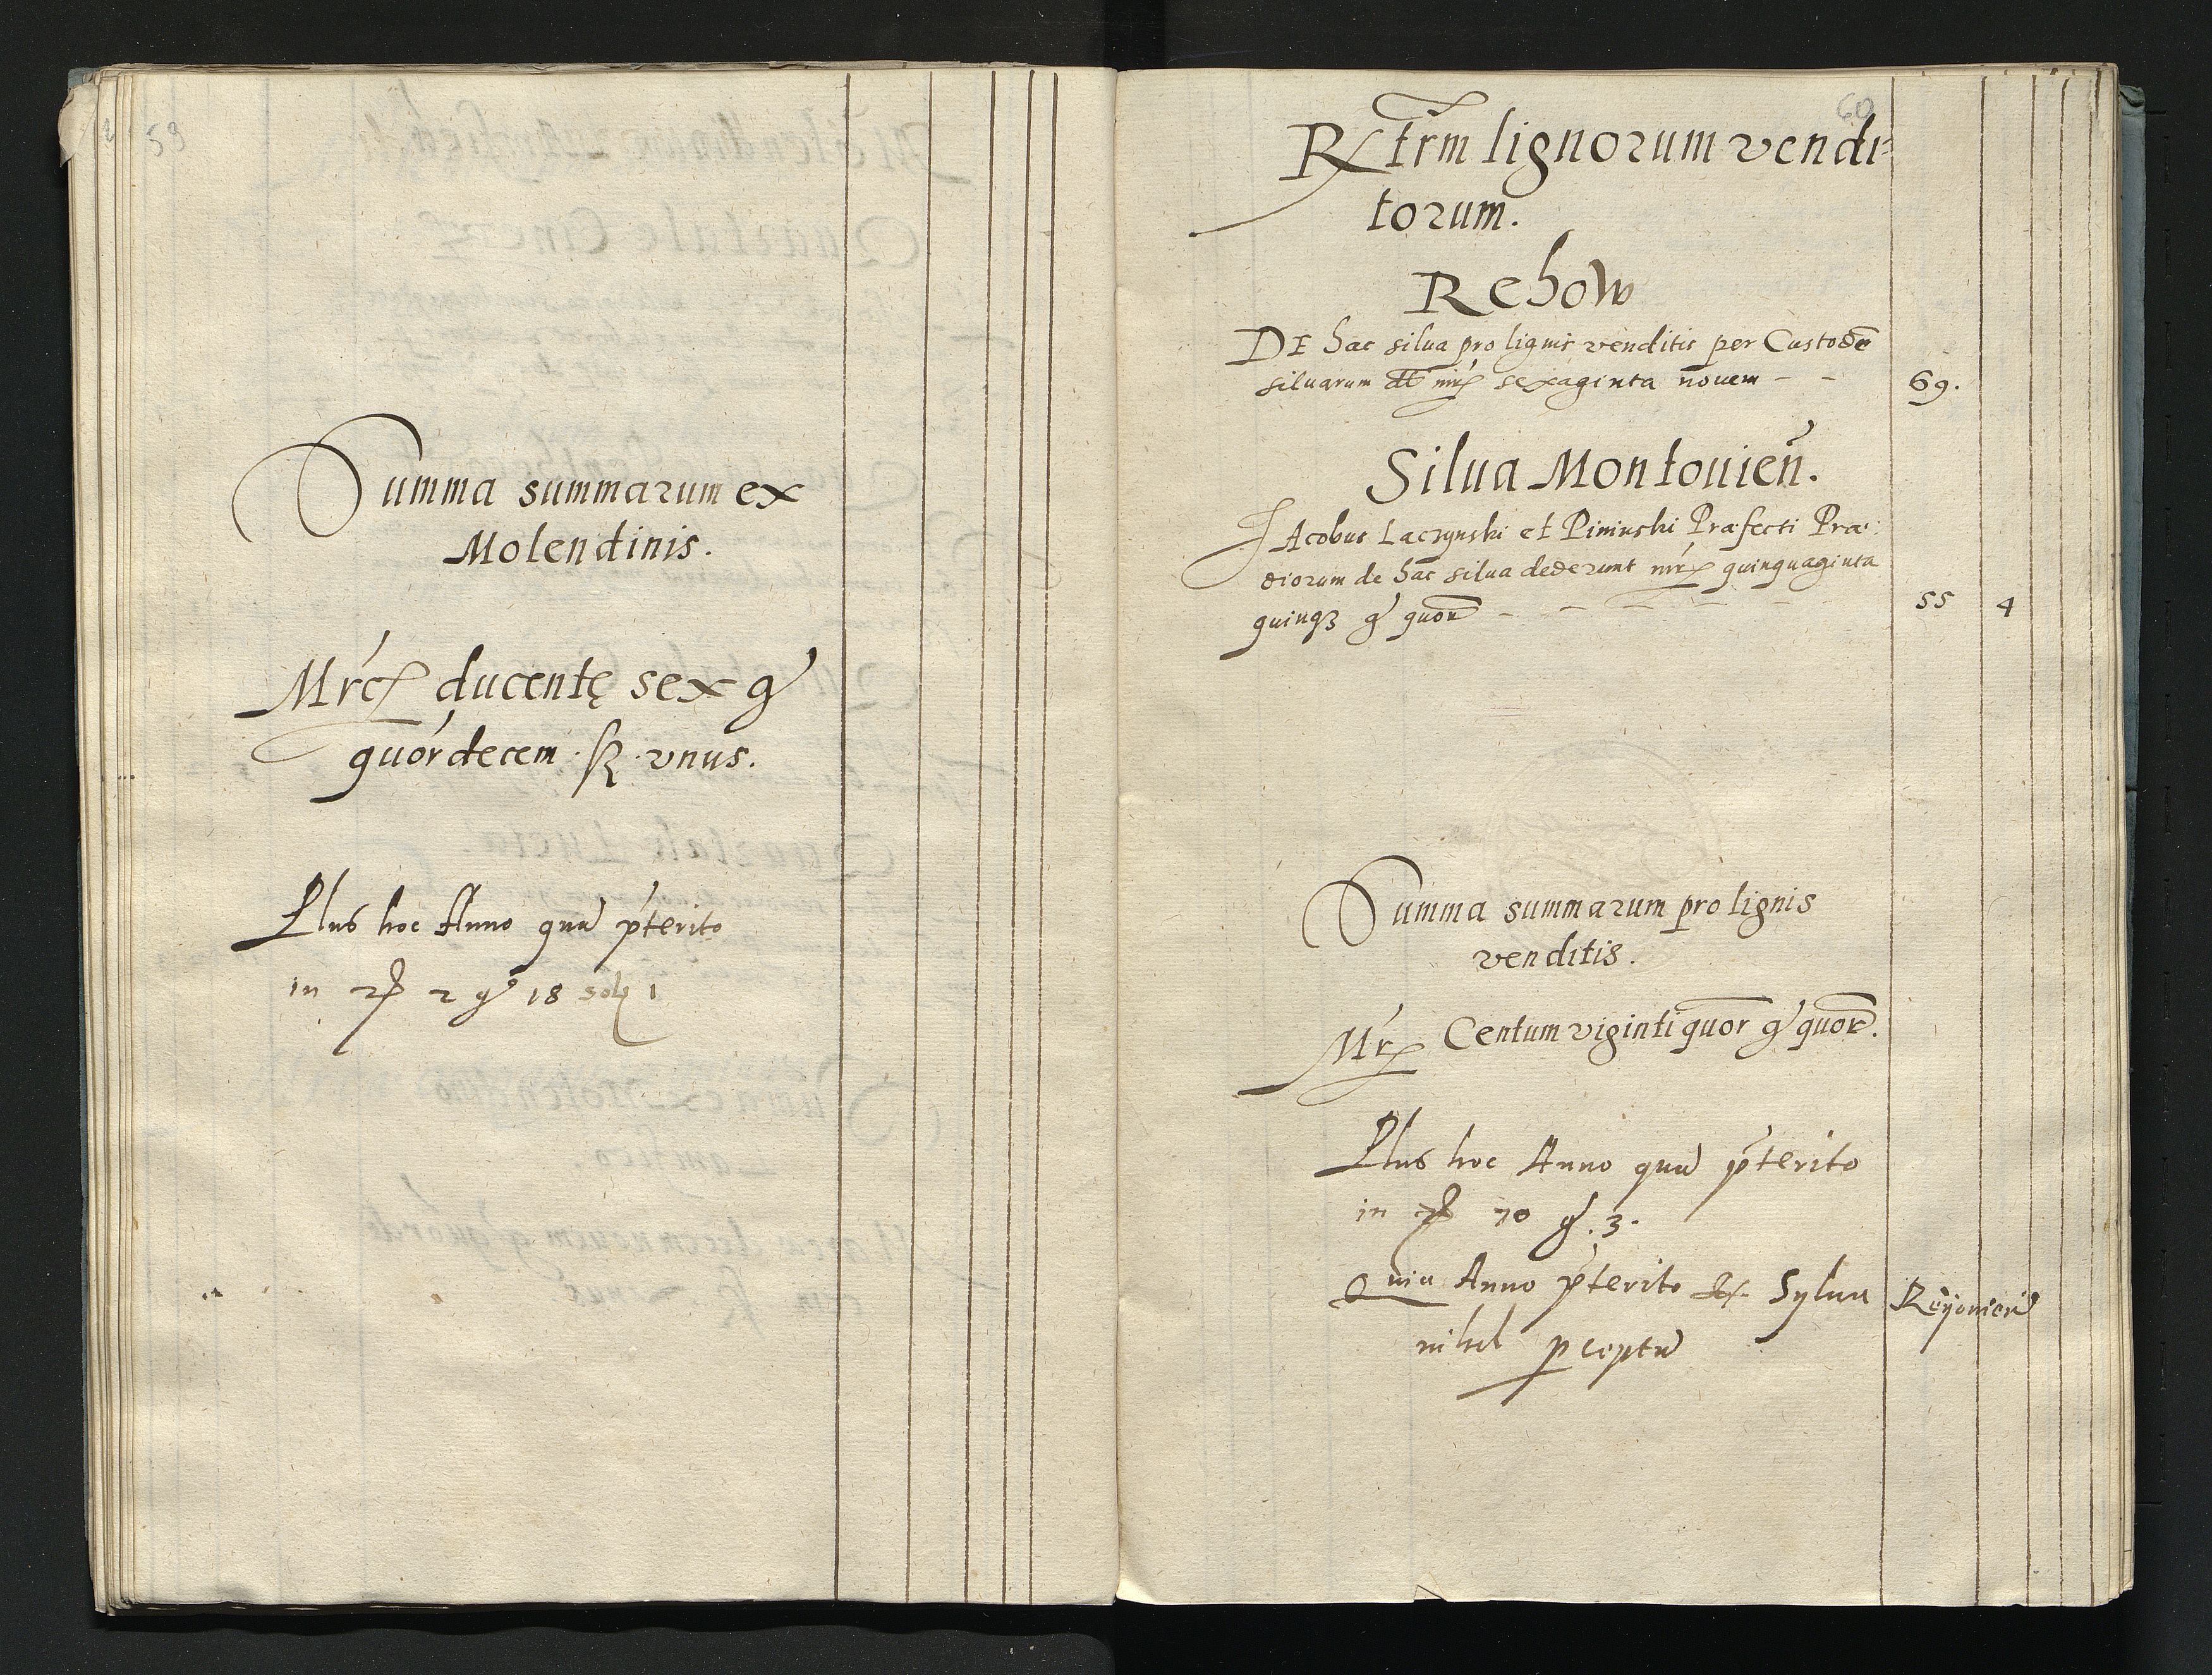 59
Summa summarum ex
Molendinis.
Mrc ducentę sex g
quordecem · sol · vnus.
Plus hoc Anno qua p'terito
in mr 2 g 18 sol 1
60
Rtrm lignorum vendi=
torum.
Rehow
DE hac silua pro lignis venditis per Custode
siluarum dt mr sexaginta nouem - - 69.
Silua Montouien̄.
JAcobus Laczynski et Pininski Præfecti Præ:
diorum de hac silua dederunt mr quinquaginta
quinqз g quor - - - - - 55 4
Summa summarum pro lignis
venditis.
Mr Centum viginti quor g quor.
Plus hoc Anno qua p'terito
in mr 70 g. 3.
Quia Anno p'terito ex Sylua
nihil pceptu